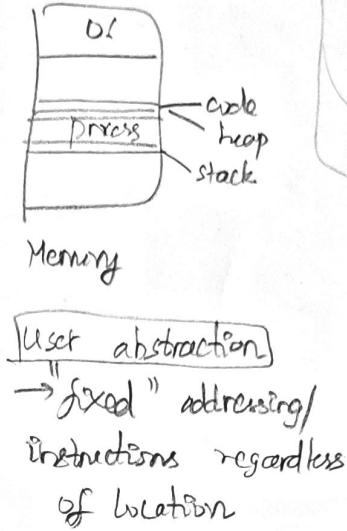 OS
code
process
heap
stack
Memory
User abstraction
→ "fixed" addressing/
instructions regardless
of location